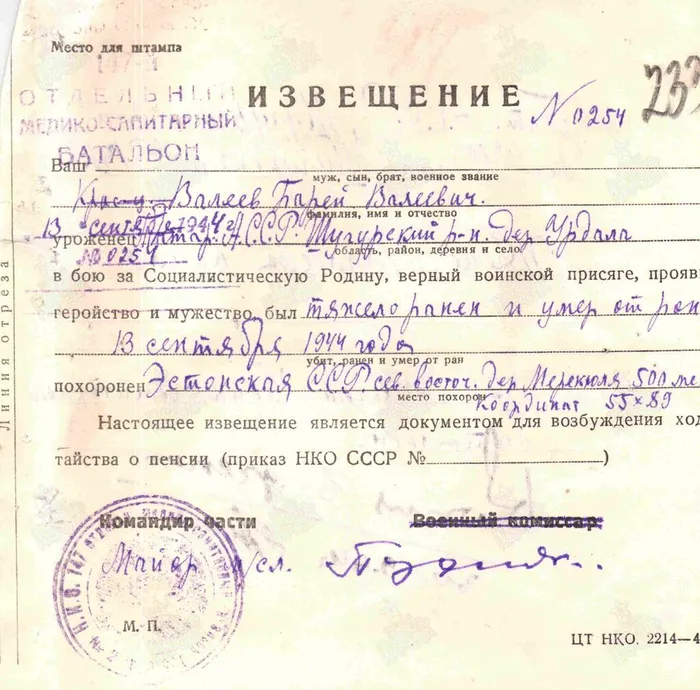 Место для штампа
147-й
ОТДЕЛЬНЫЙ
МЕДИКО-САНИТАРНЫЙ
БАТАЛЬОН
ИЗВЕЩЕНИЕ
N 0254
232
Ваш
муж, сын, брат, военное звание
Кр-ц Валеев Барей Валеевич.
фамилия, имя и отчество
13 сентября 1944 г.
уроженец Татар. АССР Шугурский р-н. дер Урдала
область, район, деревня и село
№ 0254
в бою за Социалистическую Родину, верный воинской присяге, прояв
геройство и мужество, был тяжело ранен и умер от ран
13 сентября 1944 года
убит, ранен и умер от ран
похоронен Эстонская ССР сев. восточ. дер Мерекюля 500 ме
место похорон
Координат 55×89
Настоящее извещение является документом для возбуждения ход
тайства о пенсии (приказ НКО СССР № )
Командир части
Военный комиссар
Майор м/сл.
М. П.
ЦТ НКО. 2214—4
Линия отреза